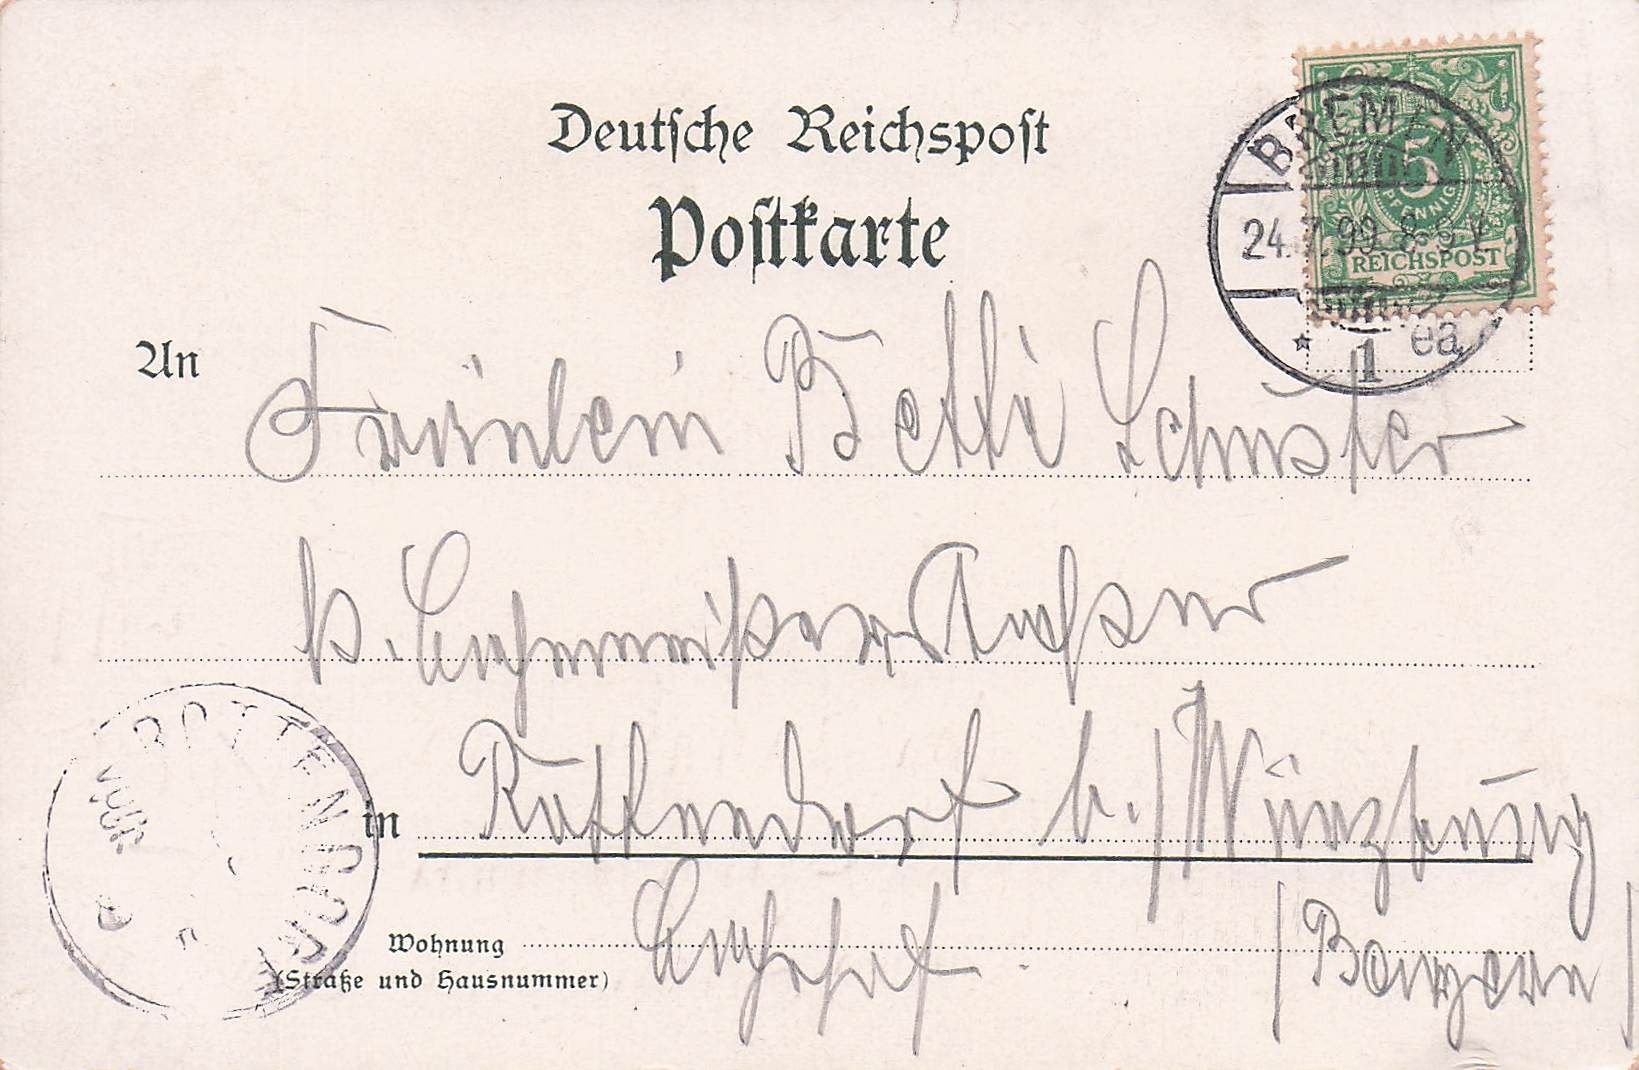 Deutsche Reichspost
Postkarte
BREMEN
24.7.99. 8-9 V.
* 1 ea
5
PFENNIG
REICHSPOST
An
Fräulein Betti Schuster
b. Bahnmeister
Rottendorf b./Würzburg
in
ROTTENDORF
Wohnung
(Straße und Hausnummer)
Bahnhof.
/Bayern/